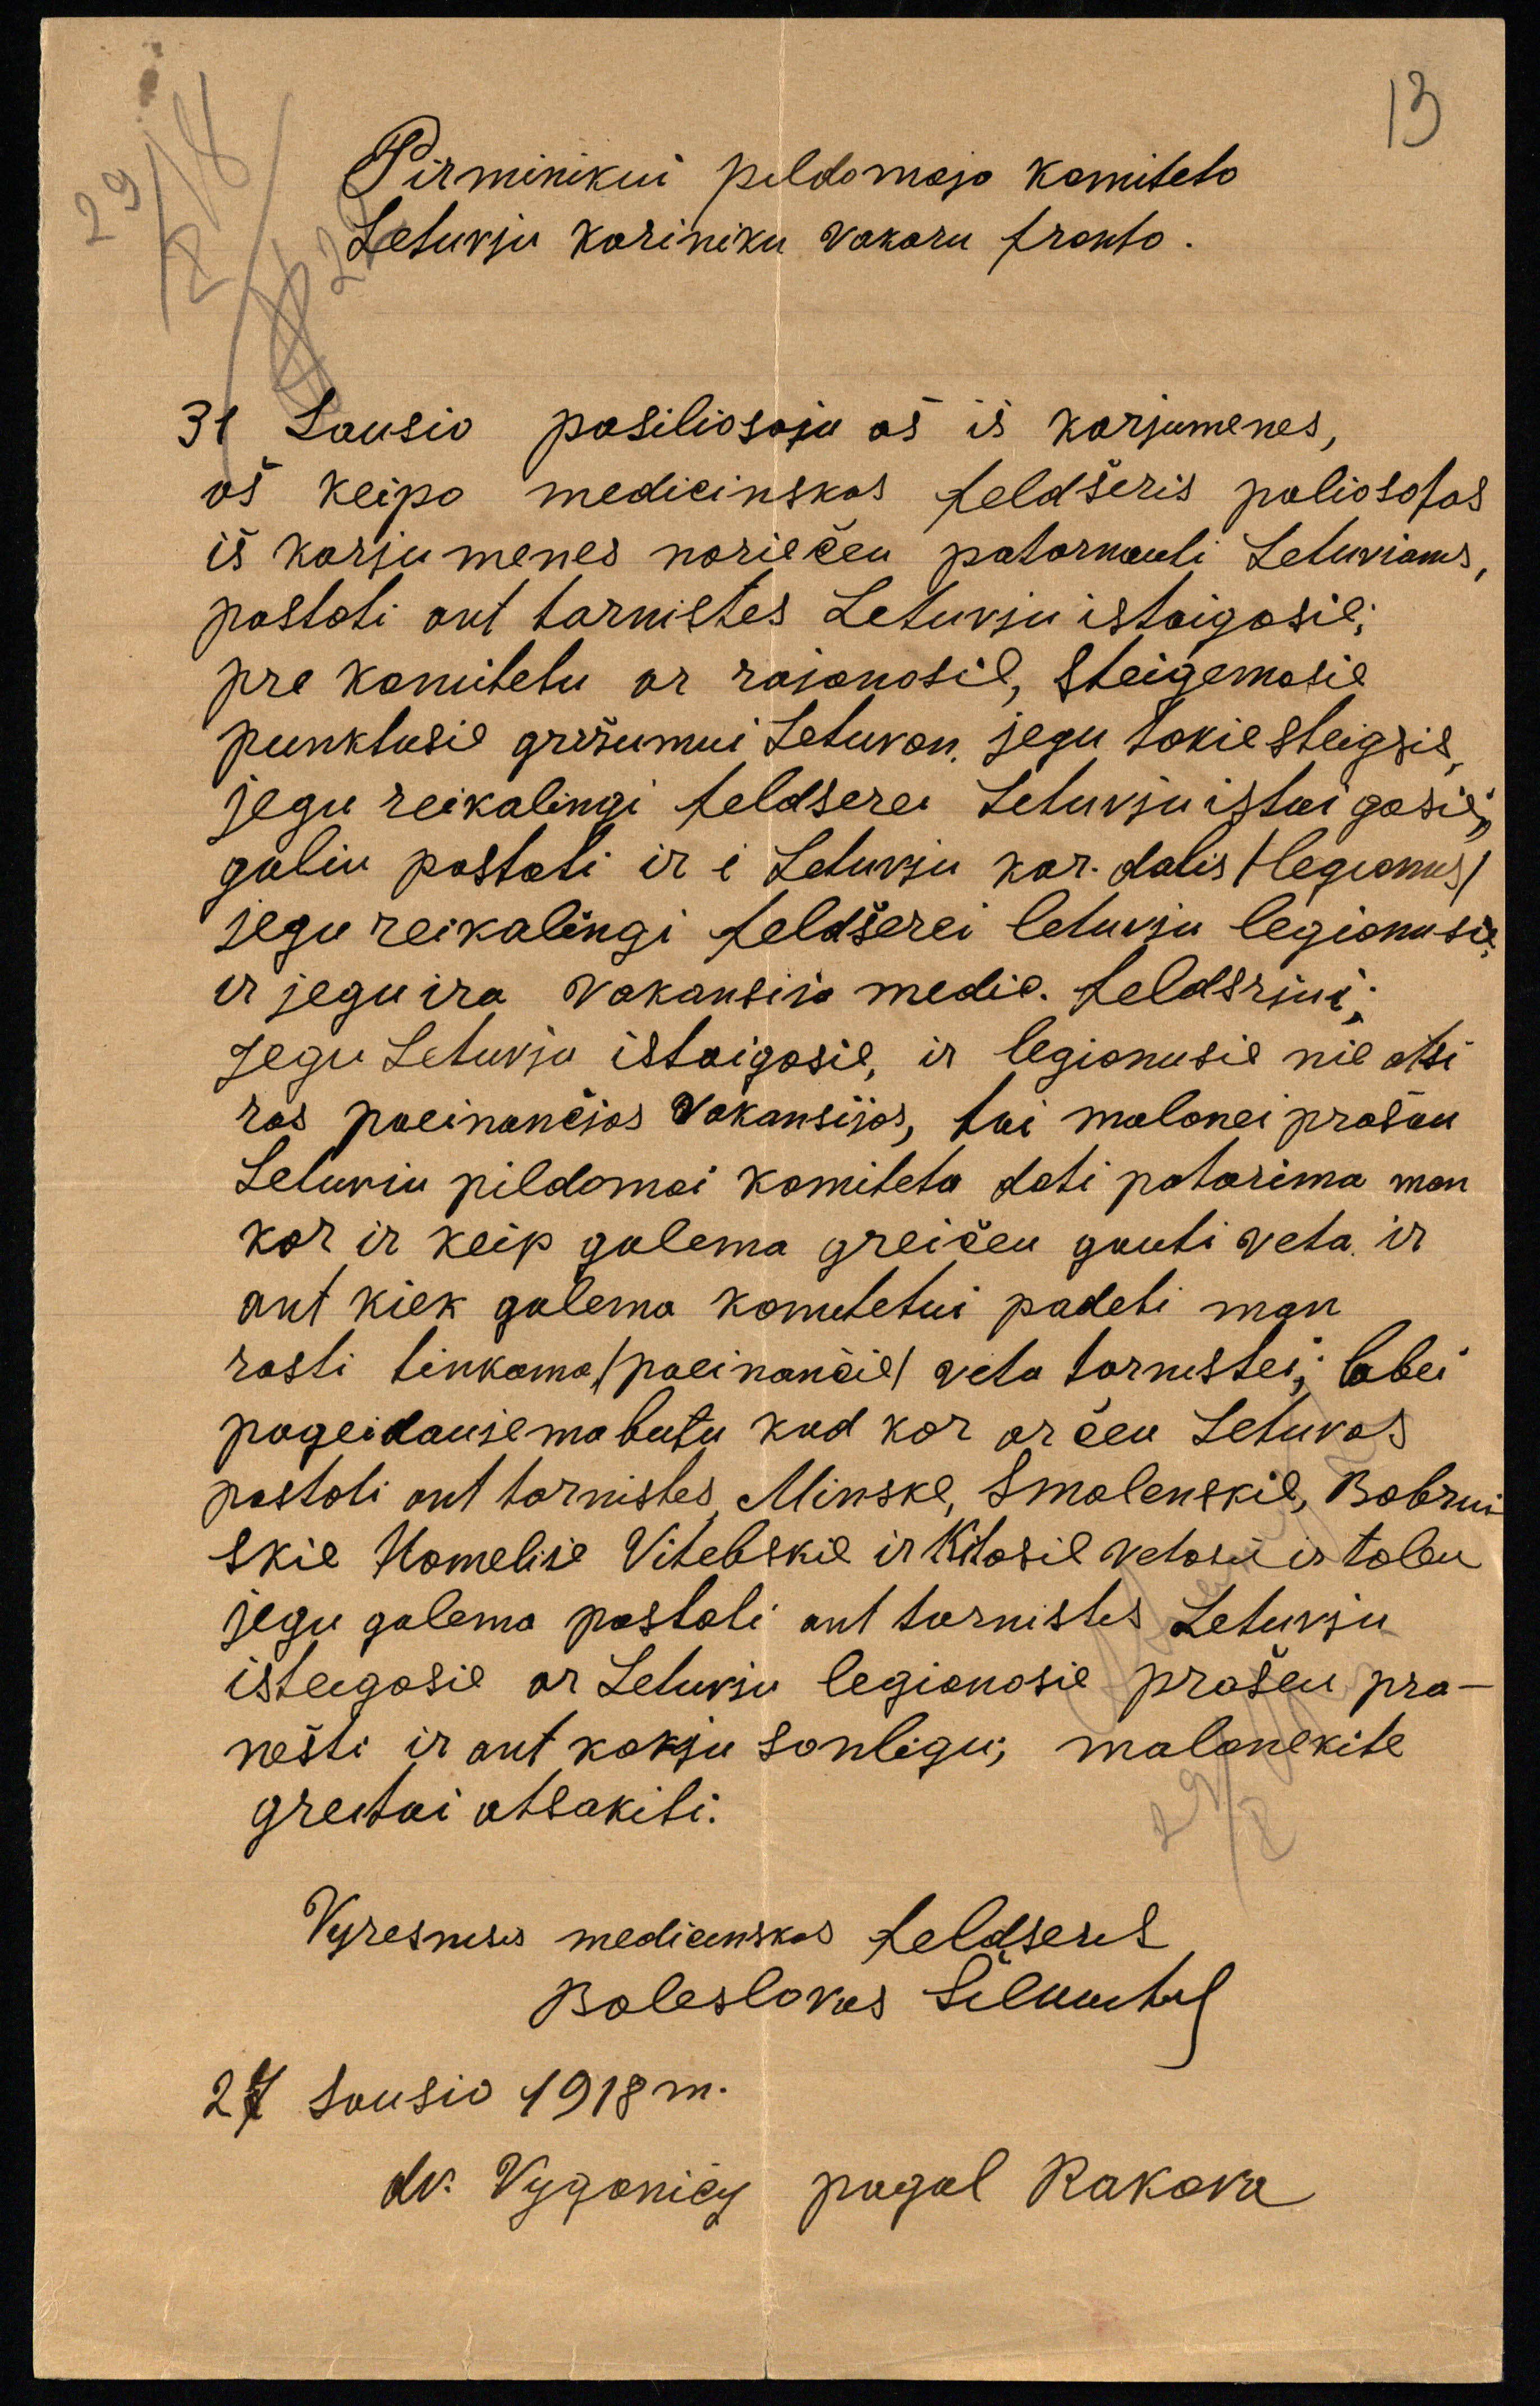 13
29/18
Pirminikui pildomojo komiteto
Letuvju kariniku vakaru fronto.
31 Sausio pasiliosoju aš iš karjumenes,
aš keipo medicinskas feldšeris paliosotas
iš karjumenes noriečeu patarnauti Letuviams,
pastoti ant tarnistes Letuvju istaigosie;
pre komitetu ar rajonosie, Steigemosie
punktusie grižumui Letuvon, jegu tokie steigsis,
jegu reikalingi feldserei Letuvju istaigosie;
galiu pastoti ir i Letuvju kar. dalis /legionus/
jegu reikalingi feldšerei letuvju legionusie,
ir jegu ira vakansija medic. feldsrjui;
Jegu Letuvju istaigosie, ir legionusie nie atsi
ras paeinančjos Vakansijos, tai malonei prašau
Letuviu pildomai komiteta doti patarima man
kor ir keip galema greičeu gauti veta ir
ant kiek galema komitetui padeti man
rasti tinkama /paeinančie/ veta tarnistei; labei
pageidausema butu kad kor arčeu Letuvos
pastoti ant tarnistes, Minske, Smolenskie, Bobrui
skie Homelisie Vitebskie ir Kitosie vetosie ir toleu
jegu galema pastoti ant tarnistes Letuvju
isteigosie ar Letuvju legionosie prašeu pra-
nešti ir ant kokju sonligu; malonekite
greitai atsakiti.
29/8
Vyresnisis medicinskas feldseris
Boleslovas
27 Sausio 1918 m.
dv. Vygoničy pagal Rakova